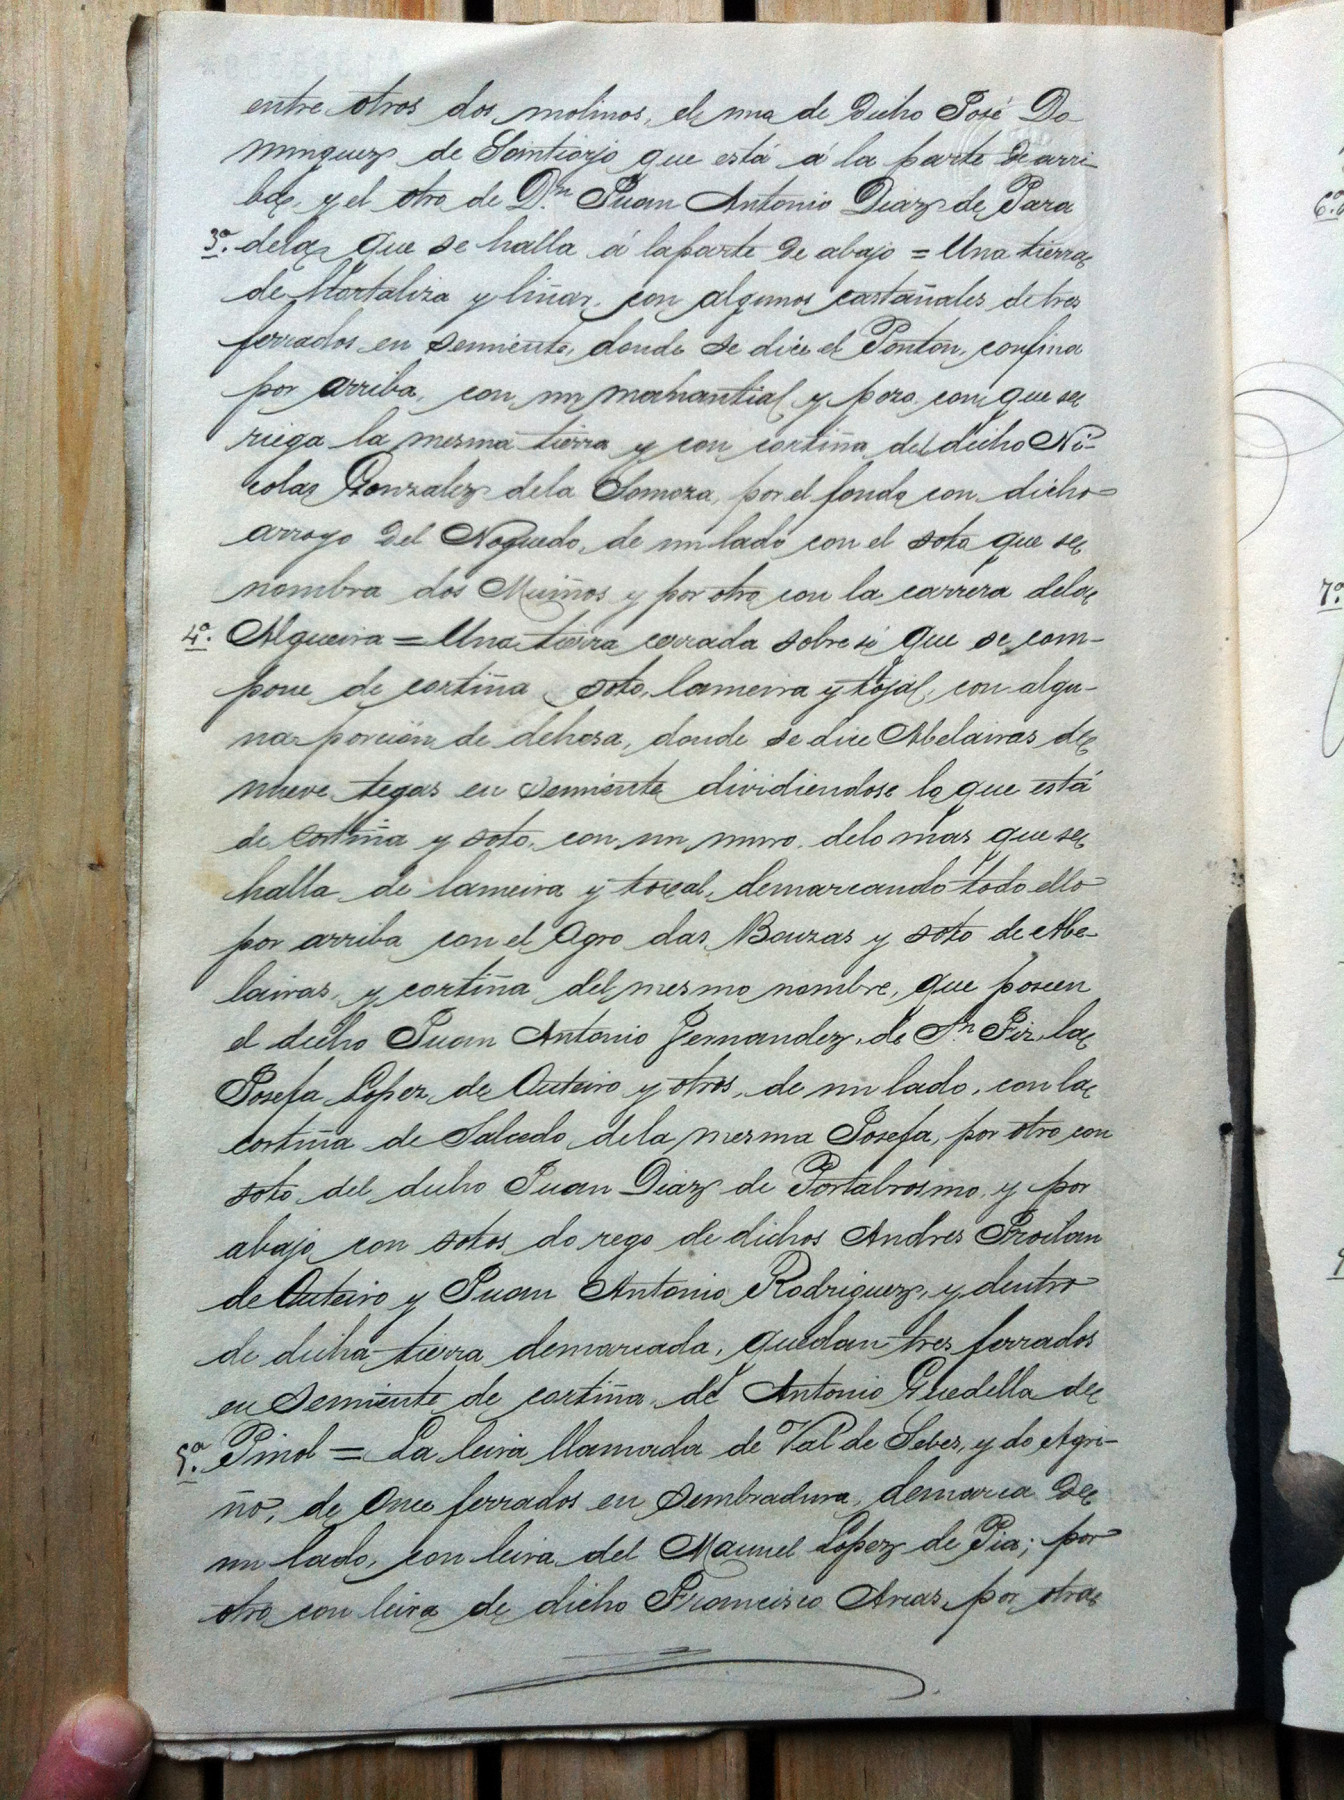 entre otros dos molinos, el una de dicho José Do
minguez de Santiorjo que está á la parte de arri
ba, y el otro de D.n Juan Antonio Diaz de Para
3ª. dela, que se halla á la parte de abajo = Una tierra
de Hortaliza y liñar, con algunos castañales de tres
ferrados en semiente, donde se dice el Ponton, confina
por arriba, con un manantial y pozo con que se
riega la mesma tierra y con cortiña del dicho Ni-
colas Gonzalez dela Somoza, por el fondo con dicho
arroyo del Noguedo, de un lado con el soto que se
nombra dos Muiños y por otro con la carrera dela
4ª. Algueira = Una tierra cerrada sobre si que se com-
pone de cortiña, soto, lameira y tojal, con algu-
na porción de dehesa, donde se dice Abelairas de
nueve tegas en semiente dividiendose lo que está
de cortiña y soto, con un muro, delo mas que se
halla de lameira y toxal, demarcando todo ello
por arriba con el Agro das Bouzas y soto de Abe-
lairas, y cortiña del mesmo nombre, que poseen
el dicho Juan Antonio Fernandez, de S.n Fiz, la
Josefa Lopez de Outeiro y otros, de un lado, con la
cortiña de Salcedo dela mesma Josefa, por otro con
soto del dicho Juan Diaz de Portabrosmo, y por
abajo con sotos do rego de dichos Andres Froilan
de Outeiro y Juan Antonio Rodriguez, y dentro
de dicha tierra demarcada, quedan tres ferrados
en semiente de cortiña, del Antonio Guedella de
5.ª Pinol = La leira llamada de Val de Seber, y do Agri-
ño, de Once ferrados en sembradura, demarca de
un lado, con leira del Manuel Lopez de Pia; por
otro con leira de dicho Francisco Arias, por otra